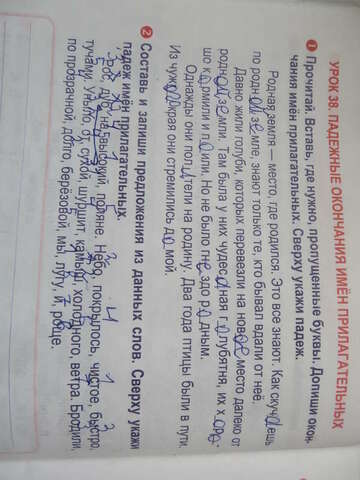 УРОК 38. ПАДЕЖНЫЕ ОКОНЧАНИЯ ИМЁН ПРИЛАГАТЕЛЬНЫХ
1 Прочитай. Вставь, где нужно, пропущенные буквы. Допиши окон-
чания имён прилагательных. Сверху укажи падеж.
Родная земля — место, где родился. Это все знают. Как скучаешь
по родной земле, знают только те, кто бывал вдали от неё.
Давно жили голуби, которых перевезли на новое место далеко от
родной земли. Там была у них чудесная голубятня, их хоро-
шо кормили и поили. Но не было гнездо родным.
Однажды они полетели на родину. Два года птицы были в пути.
Из чужого края они стремились домой.
2 Составь и запиши предложения из данных слов. Сверху укажи
падеж имён прилагательных.
Рос, дуб, на, высокий, поляне. Небо, покрылось, чистое, быстро,
тучами. Уныло, от, сухой, шуршит, камыш, холодного, ветра. Бродили,
по прозрачной, долго, берёзовой, мы, лугу, и, роще.